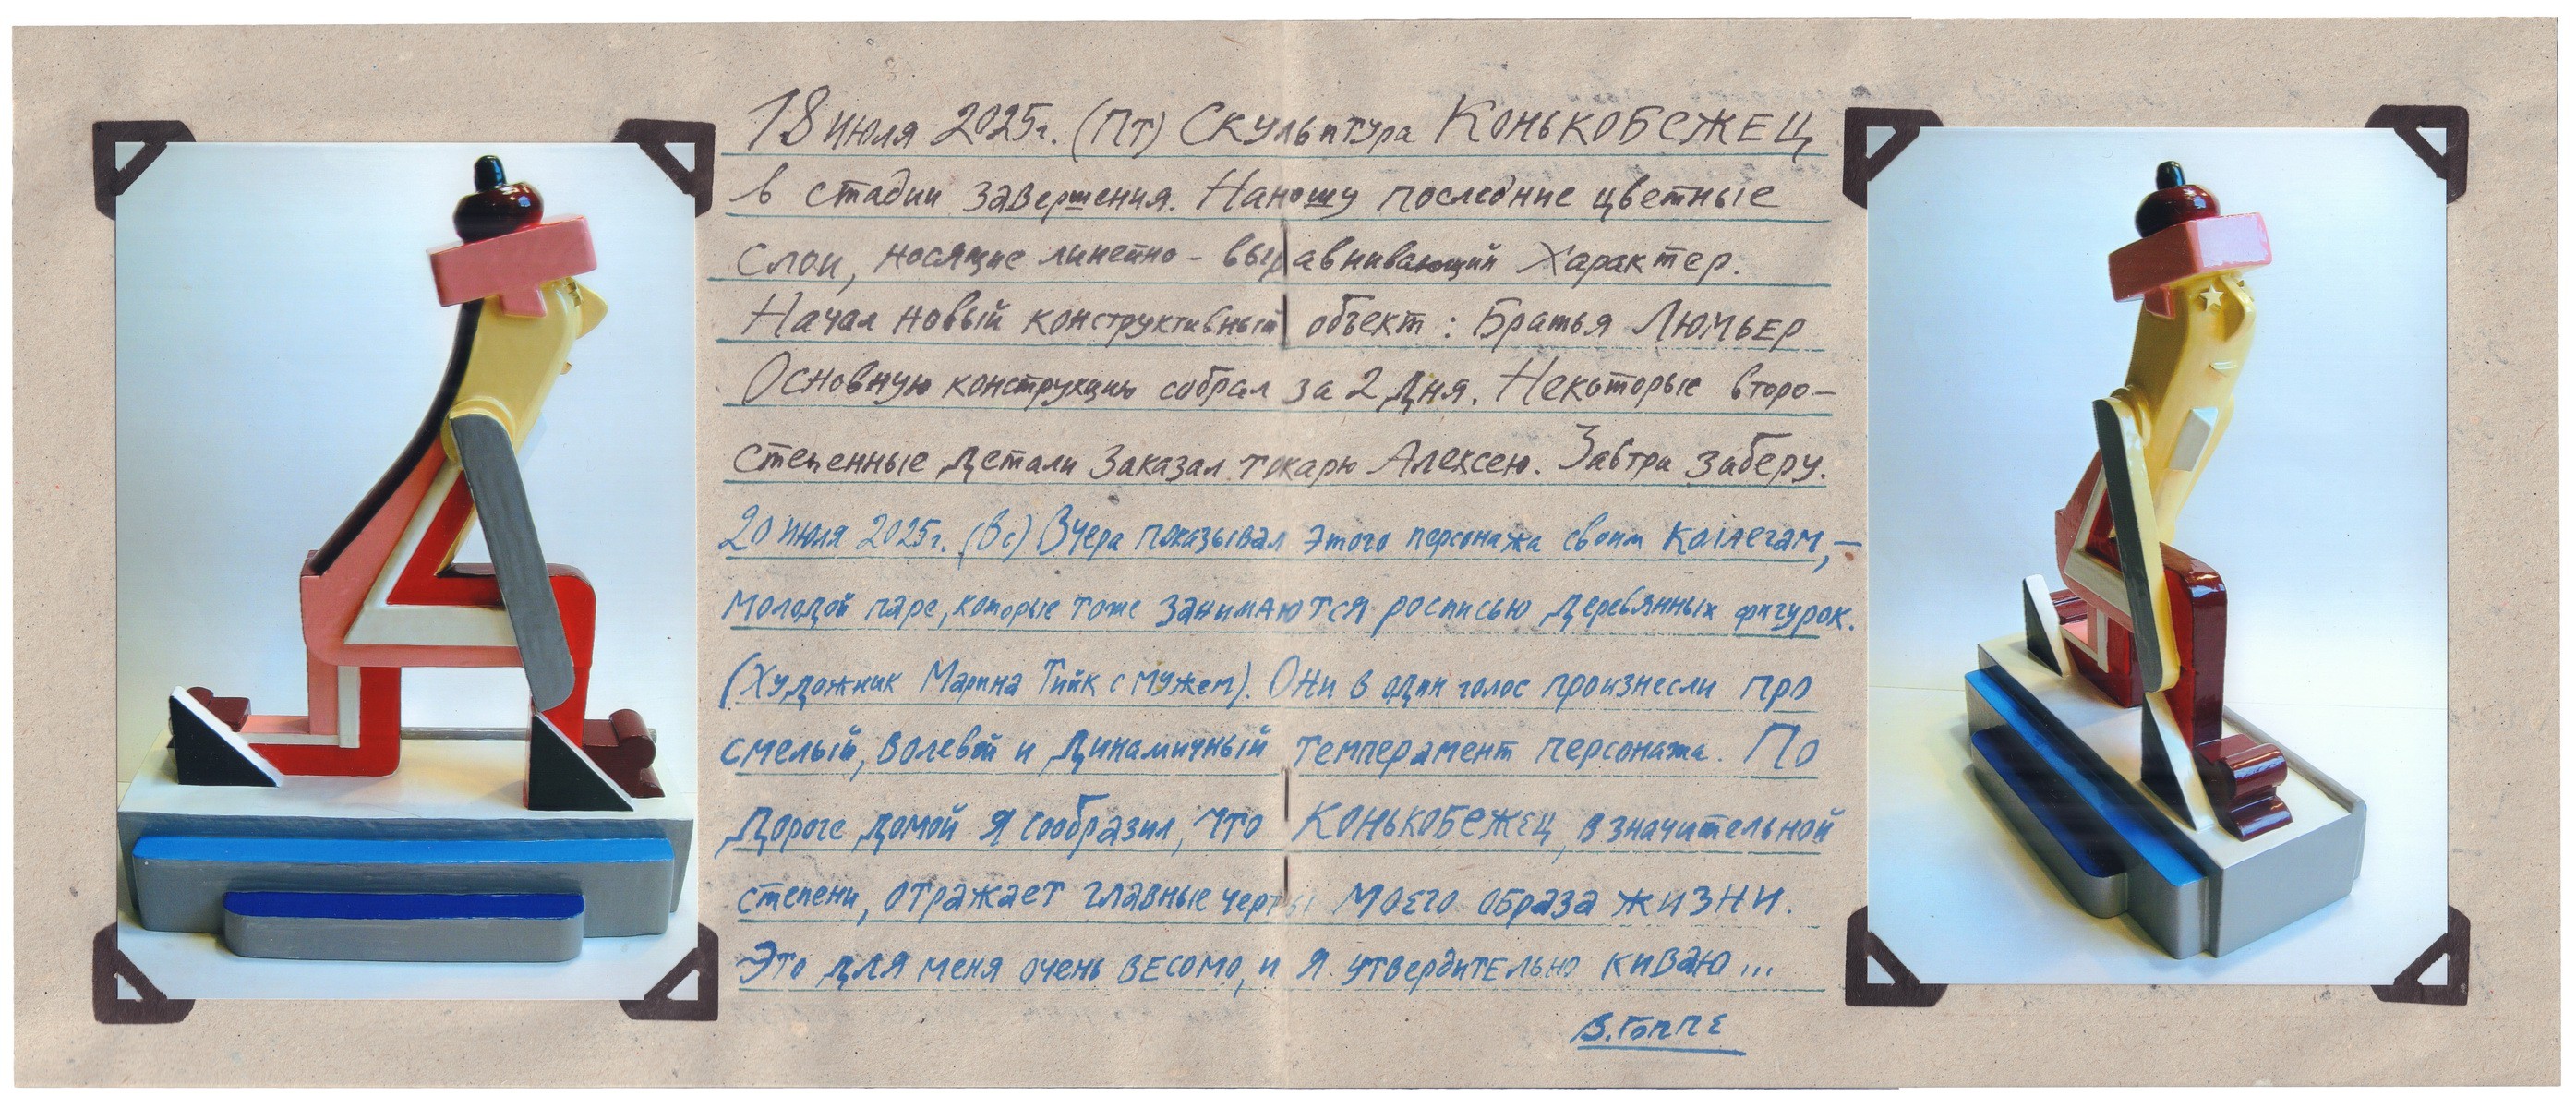 18 июля 2025г. (Пт) Скульптура КОНЬКОБЕЖЕЦ
в стадии завершения. Наношу последние цветные
слои, носящие линейно - выравнивающий характер.
Начал новый конструктивный объект: Братья ЛЮМЬЕР
Основную конструкцию собрал за 2 дня. Некоторые второ-
степенные детали заказал токарю Алексею. Завтра заберу.
20 июля 2025г. (Вс) Вчера показывал этого персонажа своим коллегам, -
молодой паре, которые тоже занимаются росписью деревянных фигурок.
(Художник Марина Тийк с мужем). Они в один голос произнесли про
смелый, волевой и динамичный темперамент персонажа. По
дороге домой я сообразил, что КОНЬКОБЕЖЕЦ, в значительной
степени, отражает главные черты моего образа жизни.
Это для меня очень весомо, и я утвердительно киваю...
В. Гоппе